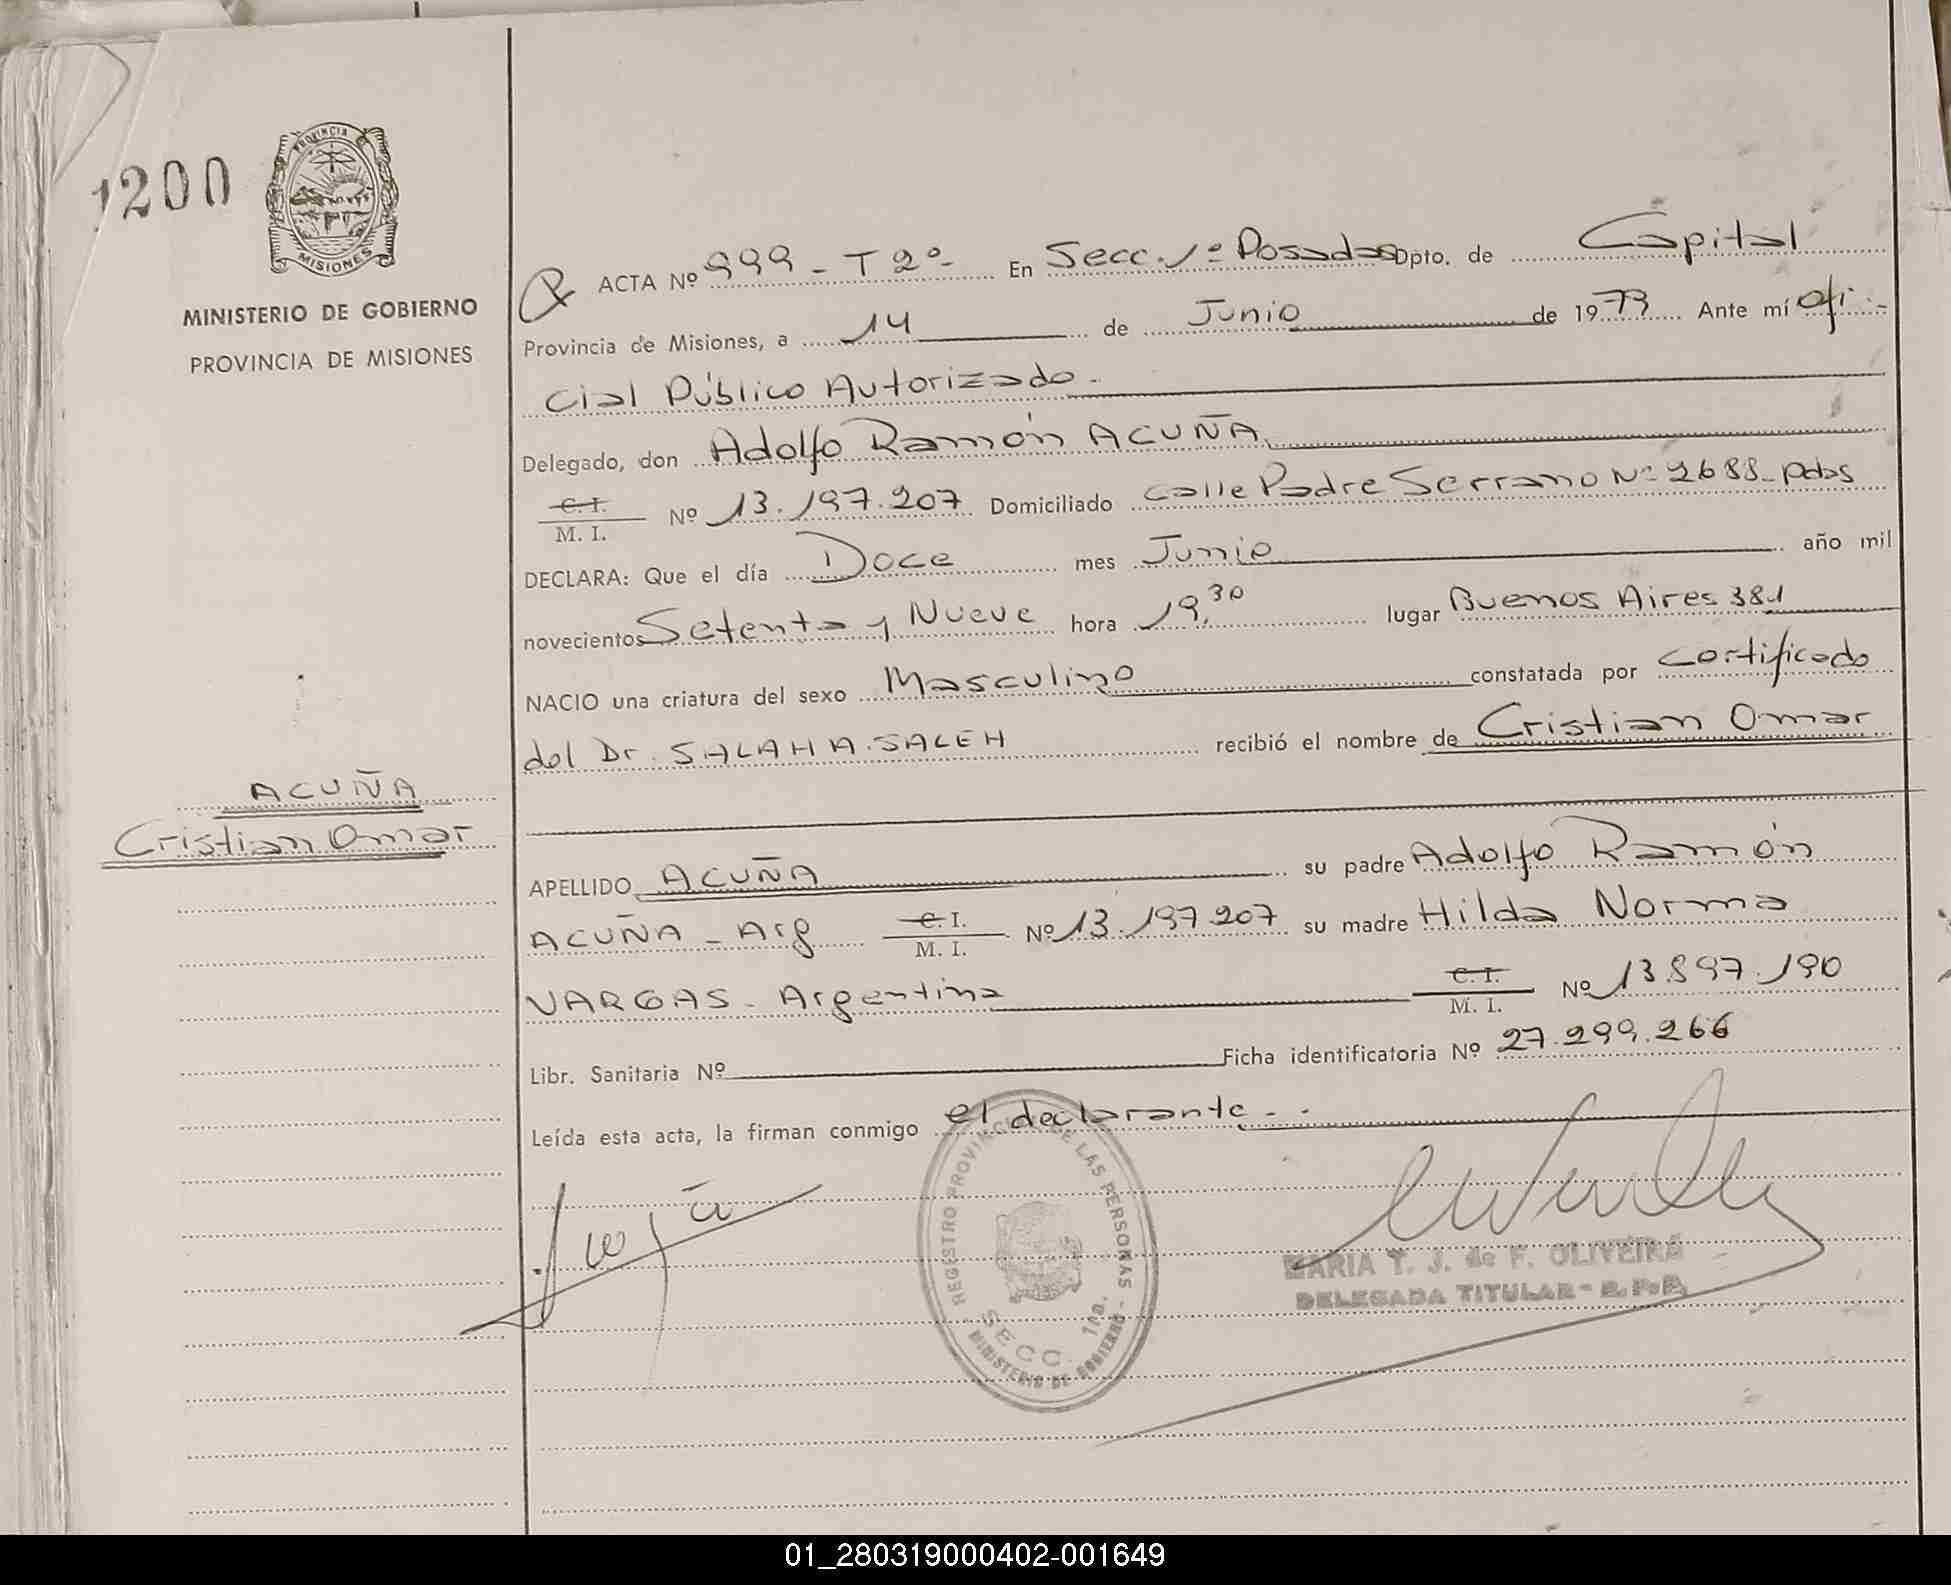 1200
PROVINCIA
MISIONES
MINISTERIO DE GOBIERNO
PROVINCIA DE MISIONES
ACTA Nº 999 - T 2º- En Secc. 1º Posadas Dpto. de Capital
Provincia de Misiones, a 14 de Junio de 1979 Ante mí ofi-
cial Público Autorizado.-
Delegado, don Adolfo Ramón ACUÑA
C. I.
M. I. Nº 13.197.207 Domiciliado calle Padre Serrano Nº 2688- pdas
DECLARA: Que el día Doce mes Junio año mil
novecientos Setenta y Nueve hora 19,30 lugar Buenos Aires 381
NACIO una criatura del sexo Masculino constatada por certificado
del Dr. SALAH A. SALEH recibió el nombre de Cristian Omar
ACUÑA
Cristian Omar
APELLIDO ACUÑA su padre Adolfo Ramón
ACUÑA - Arg C. I. M. I. Nº 13.197.207 su madre Hilda Norma
VARGAS - Argentina C. I. M. I. Nº 13.897.190
Libr. Sanitaria Nº Ficha identificatoria Nº 27.299.266
Leída esta acta, la firman conmigo el declarante - .
REGISTRO PROVINCIAL DE LAS PERSONAS
SECC. 1ra.
MINISTERIO DE GOBIERNO -
MARIA T. J. de F. OLIVEIRA
DELEGADA TITULAR - R. P. P.
01_280319000402-001649